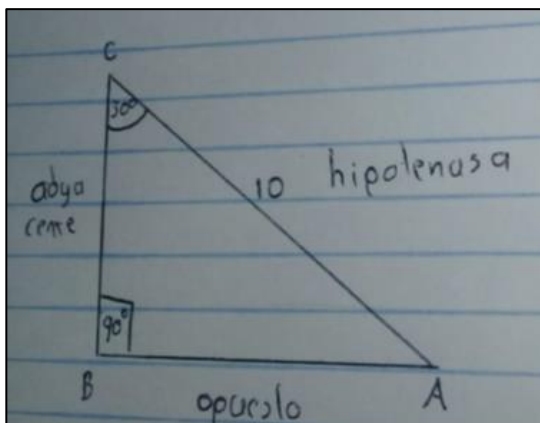 C
30°
adya
cente
10 hipotenusa
90°
B
A
opuesto